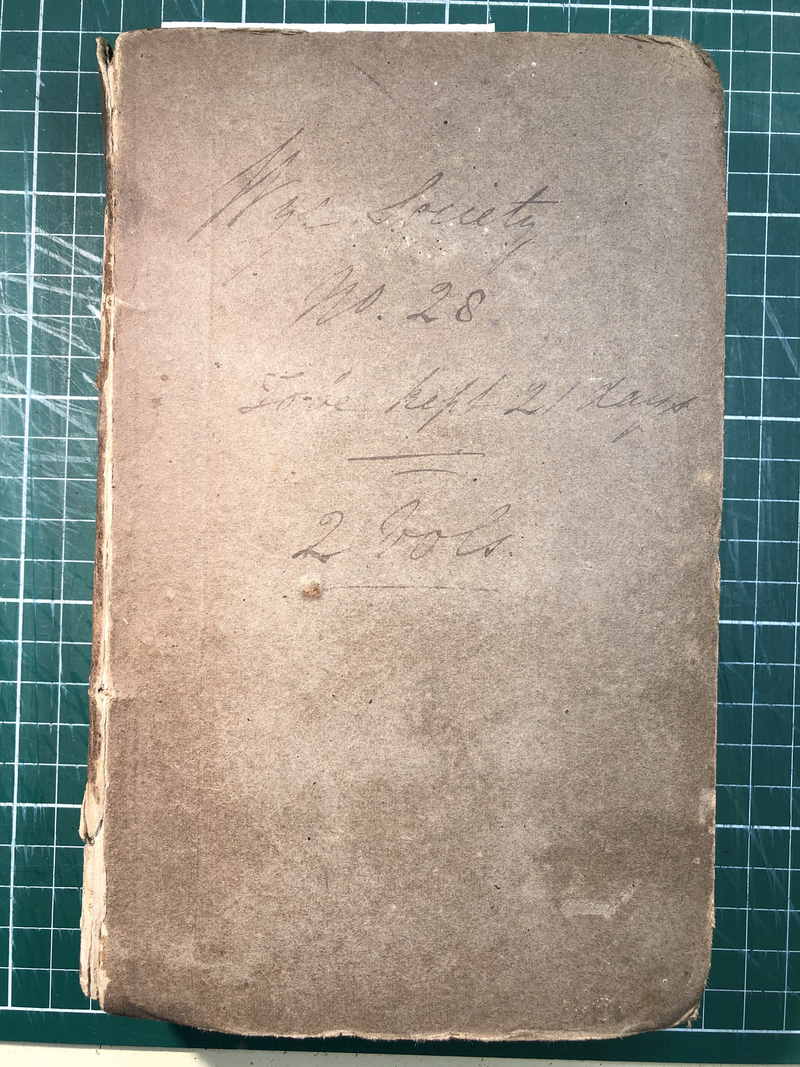 Wye Society
No. 28
To be kept 21 days
2 Vols.